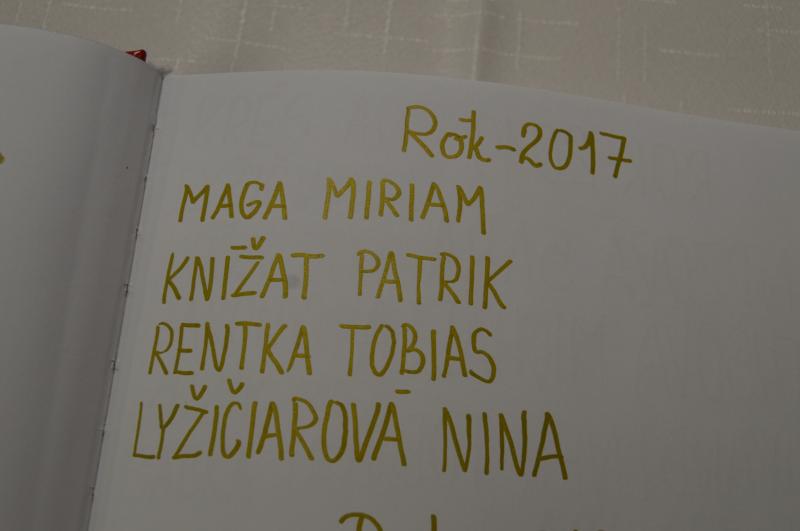 Rok-2017
MAGA MIRIAM
KNĪŽAT PATRIK
RENTKA TOBIAS
LYŽIČIAROVĀ NINA